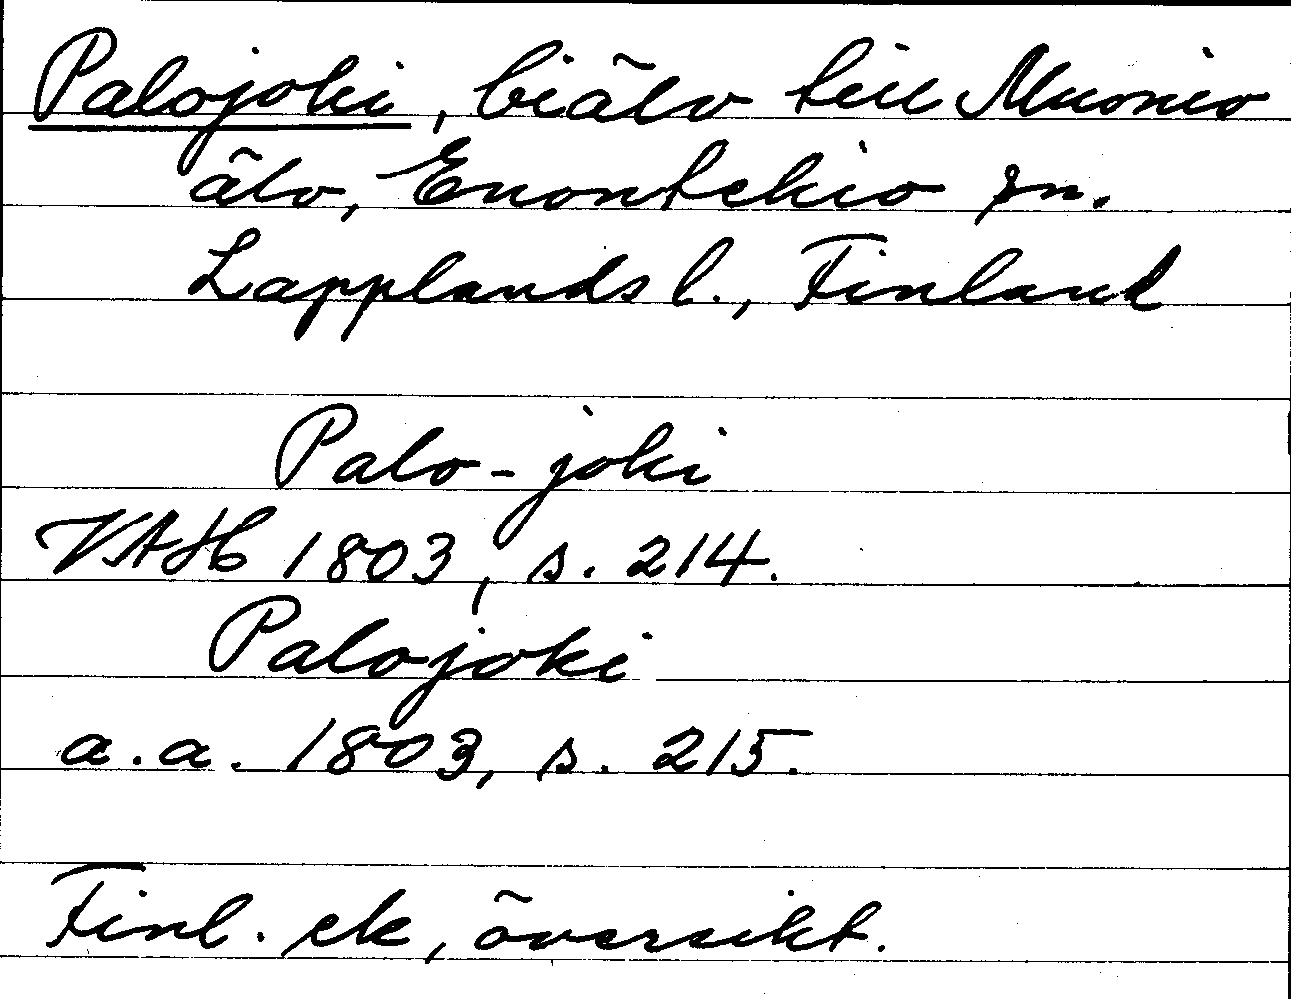 Palojoki, biälv till Muonio
älv, Enontekio sn.
Lapplands l., Finland
Palo-joki
VAH 1803, s. 214.
Palojoki
a.a. 1803, s. 215.
Finl. ek, översikt.